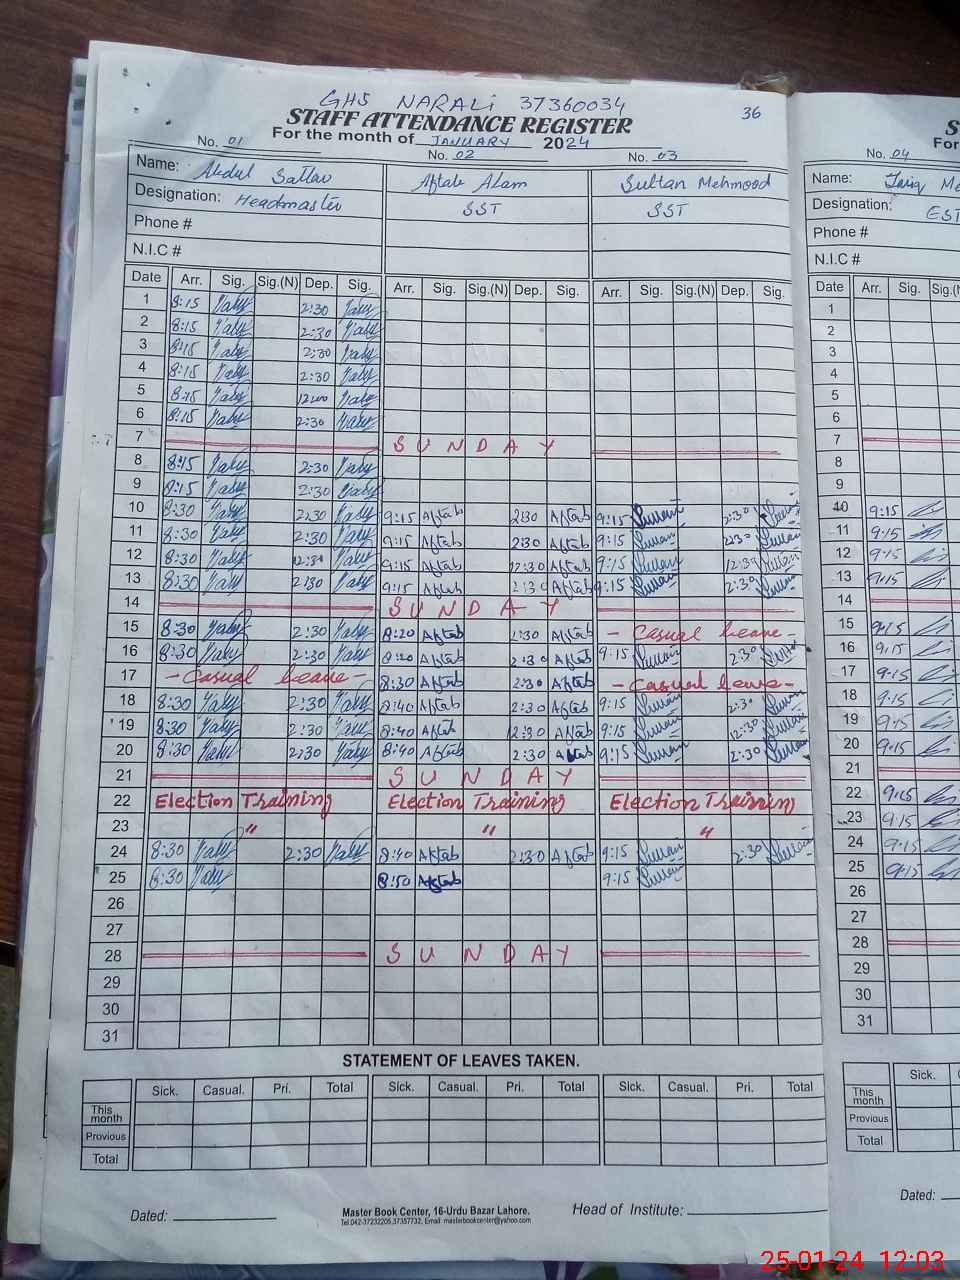 GHS NARALI 37360034
36
STAFF ATTENDANCE REGISTER
For the month of JANUARY 2024
No. 01 No. 02 No. 03 No. 04
Name: Abdul Sattar Aftab Alam Sultan Mehmood Name: Tariq Me
Designation: Headmaster SST SST Designation: EST
Phone # Phone #
N.I.C # N.I.C #
Date Arr. Sig. Sig.(N) Dep. Sig. Arr. Sig. Sig.(N) Dep. Sig. Arr. Sig. Sig.(N) Dep. Sig. Date Arr. Sig.
1 8:15 2:30 1
2 8:15 2:30 2
3 8:15 2:30 3
4 8:15 2:30 4
5 8:15 12:00 5
6 8:15 2:30 6
7 SUNDAY 7
8 8:15 2:30 8
9 8:15 2:30 9
10 8:30 2:30 9:15 Aftab 2:30 Aftab 9:15 2:30 10 9:15
11 8:30 2:30 9:15 Aftab 2:30 Aftab 9:15 2:30 11 9:15
12 8:30 12:30 9:15 Aftab 12:30 Aftab 9:15 12:30 12 9:15
13 8:30 2:30 9:15 Aftab 2:30 Aftab 9:15 2:30 13 9:15
14 SUNDAY 14
15 8:30 2:30 8:20 Aftab 2:30 Aftab - Casual Leave - 15 9:15
16 8:30 2:30 8:20 Aftab 2:30 Aftab 9:15 2:30 16 9:15
17 - Casual Leave - 8:30 Aftab 2:30 Aftab - Casual Leave - 17 9:15
18 8:30 2:30 8:40 Aftab 2:30 Aftab 9:15 2:30 18 9:15
19 8:30 2:30 8:40 Aftab 12:30 Aftab 9:15 12:30 19 9:15
20 8:30 2:30 8:40 Aftab 2:30 Aftab 9:15 2:30 20 9:15
21 SUNDAY 21
22 Election Training Election Training Election Training 22 9:15
23 " " " 23 9:15
24 8:30 2:30 8:40 Aftab 2:30 Aftab 9:15 2:30 24 9:15
25 8:30 8:50 Aftab 9:15 25 9:15
26 26
27 27
28 SUNDAY 28
29 29
30 30
31 31
STATEMENT OF LEAVES TAKEN.
Sick. Casual. Pri. Total Sick. Casual. Pri. Total Sick. Casual. Pri. Total Sick.
This month This month
Previous Previous
Total Total
Dated: Master Book Center, 16-Urdu Bazar Lahore. Head of Institute: Dated:
Tel.042-37232205,37357732, Email: masterbookcenter@yahoo.com
25-01-24 12:03